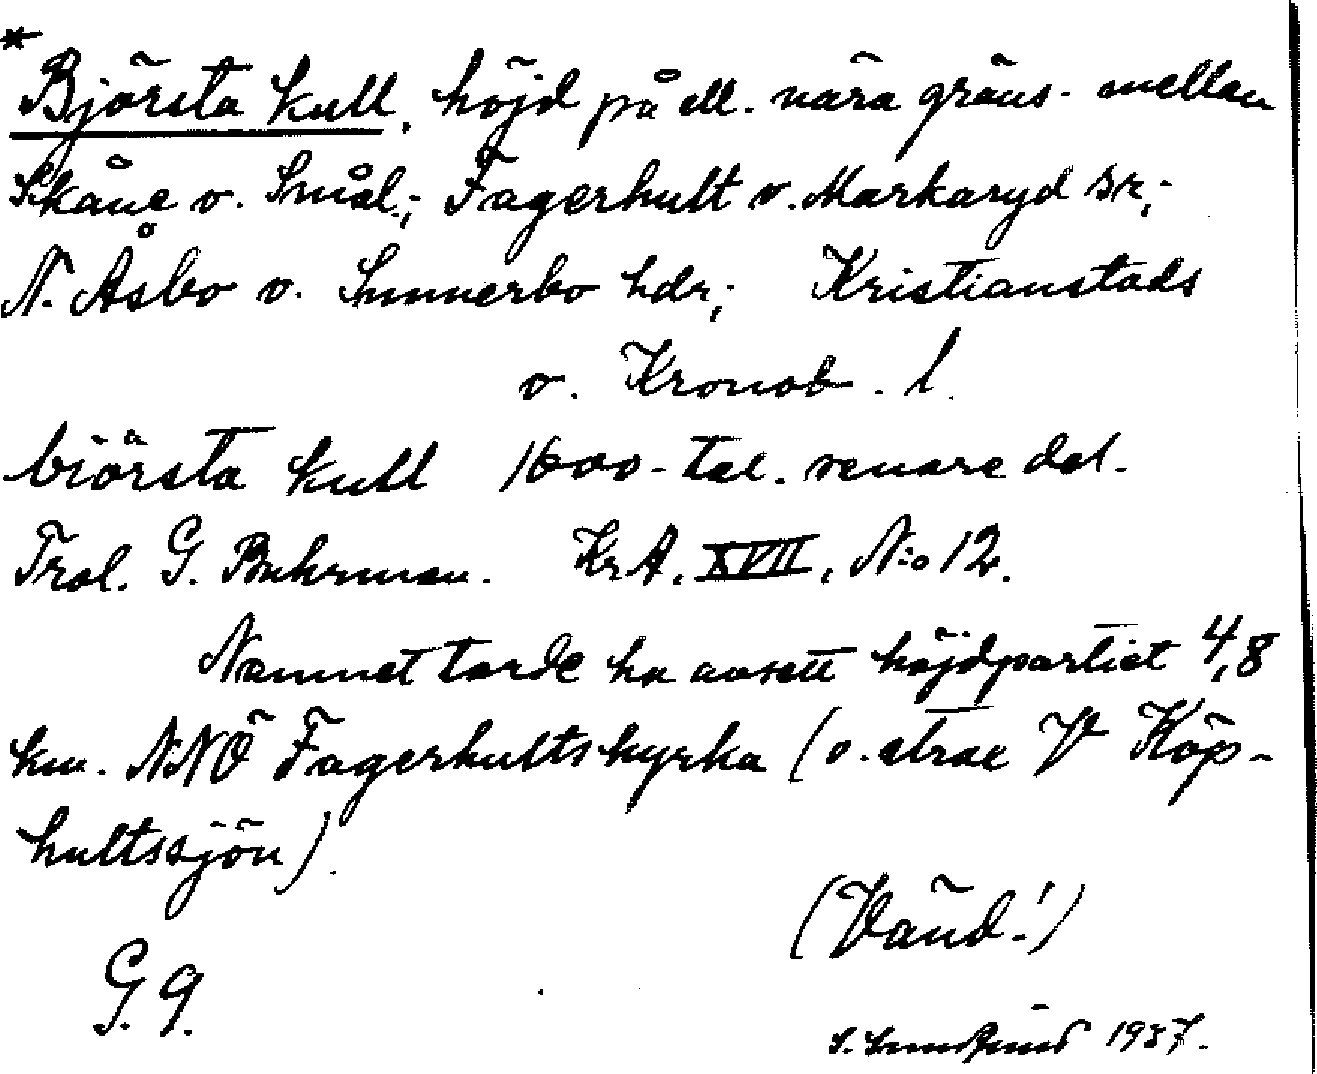 * Björsta kull, höjd på ell. nära gräns. mellan
Skåne o. Smål.; Fagerhult o. Markaryd sr;
N. Åsbo o. Sunnerbo hdr; Kristianstads
o. Kronob. l.
biörsta kull 1600-tal. senare del.
Trol. G. Buhrman. KrA, XVII, N:o 12.
Namnet torde ha avsett höjdpartiet 4,8
km. NNÖ Fagerhults kyrka (o. strax V Köp-
hultssjön).
(Vänd!)
G. 9.
1937.